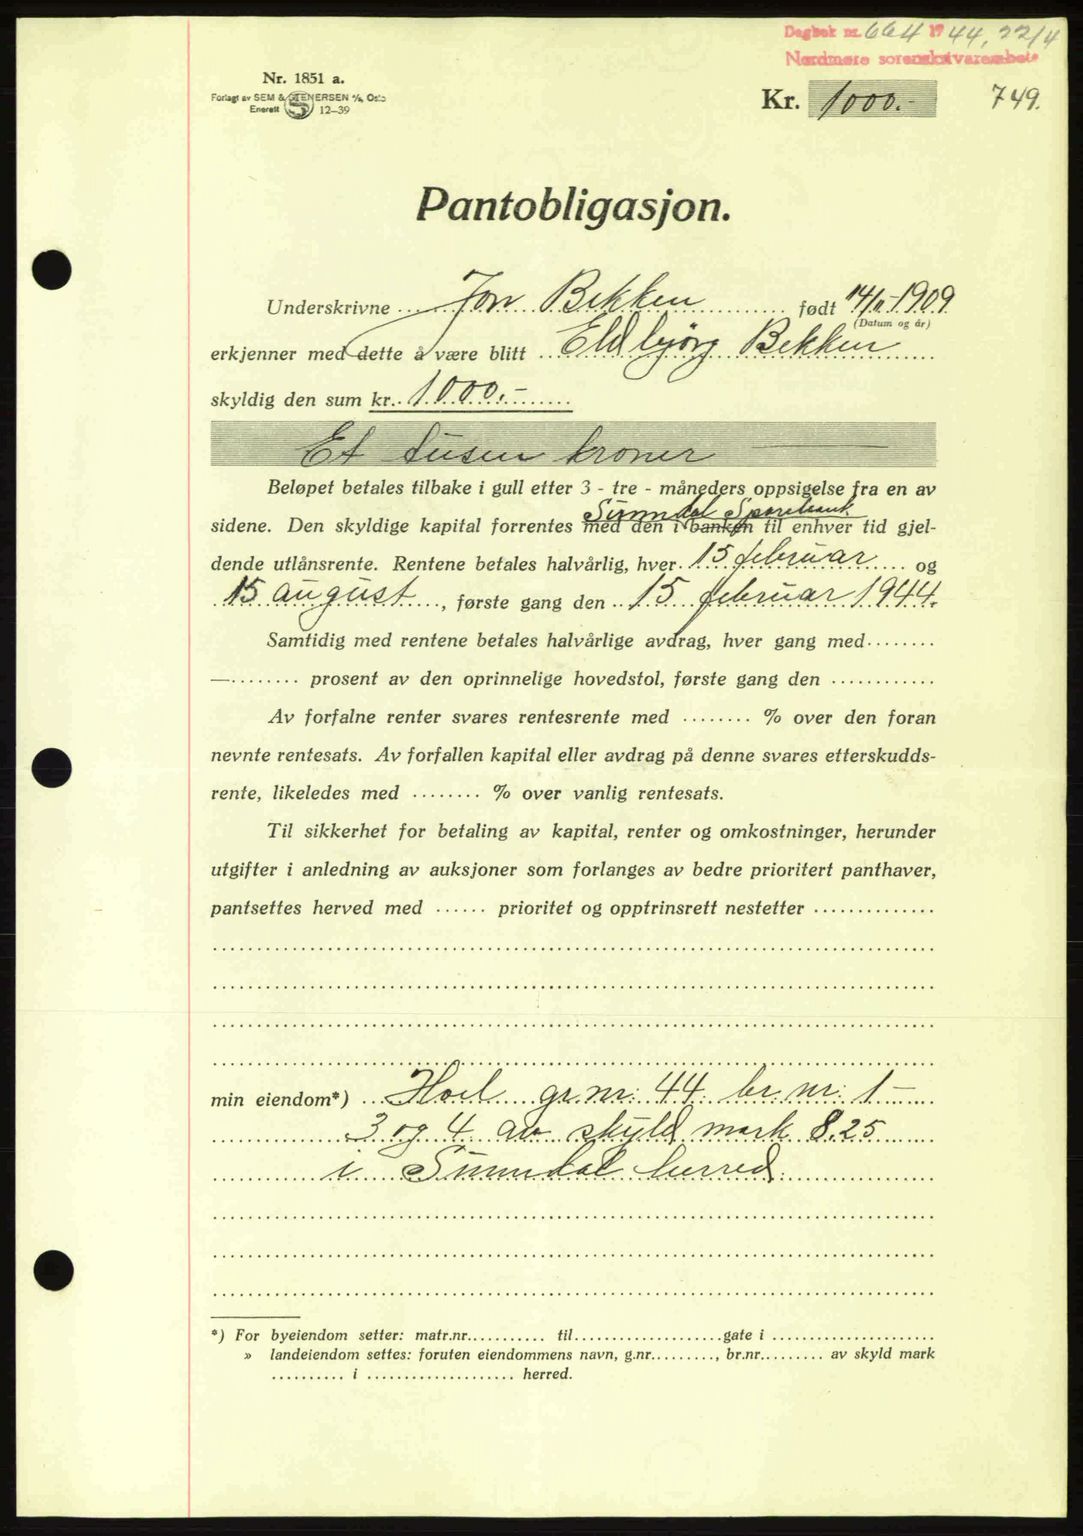 Dagbok nr. 664 19 44, 22/4
Nordmøre sorenskriverembete
Nr. 1851 a.
Forlagt av SEM & STENERSEN A/S, Oslo
Enerett 12-39
Kr. 1000.-
749.
Pantobligasjon.
Underskrivne Jon Bekken født 14/11-1909
(Datum og år)
erkjenner med dette å være blitt Eldbjørg Bekken
skyldig den sum kr. 1000.-
Et tusen kroner
Beløpet betales tilbake i gull etter 3 - tre - måneders oppsigelse fra en av
Sunndal Sparebank
sidene. Den skyldige kapital forrentes med den i banken til enhver tid gjel-
dende utlånsrente. Rentene betales halvårlig, hver 15 februar og
15 august, første gang den 15 februar 1944.
Samtidig med rentene betales halvårlige avdrag, hver gang med
— prosent av den oprinnelige hovedstol, første gang den
Av forfalne renter svares rentesrente med % over den foran
nevnte rentesats. Av forfallen kapital eller avdrag på denne svares etterskudds-
rente, likeledes med % over vanlig rentesats.
Til sikkerhet for betaling av kapital, renter og omkostninger, herunder
utgifter i anledning av auksjoner som forlanges av bedre prioritert panthaver,
pantsettes herved med prioritet og opptrinsrett nestetter
min eiendom*) Hoel gr.nr. 44 br. nr. 1-
3 og 4 av skyld mark 8.25
i Sunndal herred.
*) For byeiendom setter: matr.nr. til gate i
» landeiendom settes: foruten eiendommens navn, g.nr., br.nr. av skyld mark
i herred.